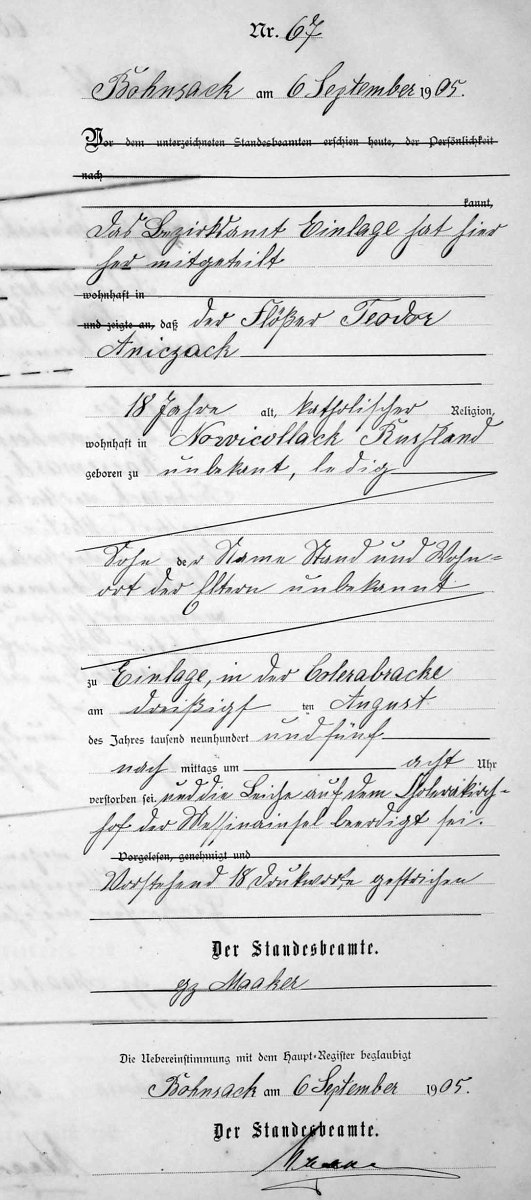 Nr. 67
Bohnsack am 6 September 1905.
Vor dem unterzeichneten Standesbeamten erschien heute, der Persönlichkeit
nach
kannt,
das Bezirksamt Einlage hat hier
her mitgeteilt
wohnhaft in
und zeigte an, daß der Flößer Teodor
Aniczack
18 Jahre alt, katholischer Religion,
wohnhaft in Nowicollack Russland
geboren zu unbekant, ledig
Sohn der Name Stand und Wohn-
ort der Eltern unbekannt
zu Einlage, in der Colerabracke
am dreißigst ten August
des Jahres tausend neunhundert und fünf
nach mittags um acht Uhr
verstorben sei und die Leiche auf dem Cholerakirch-
hof der Messinainsel beerdigt sei.
Vorgelesen, genehmigt und
Vorstehend 18 Drukworte gestrichen
Der Standesbeamte.
gz Maaker
Die Uebereinstimmung mit dem Haupt-Register beglaubigt
Bohnsack am 6 September 1905.
Der Standesbeamte.